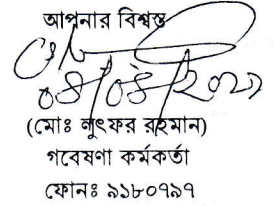 আপনার বিশ্বস্ত
০৪/০৪/২০২১
(মোঃ লুৎফর রহমান)
গবেষণা কর্মকর্তা
ফোনঃ ৯১৮০৭৯৭